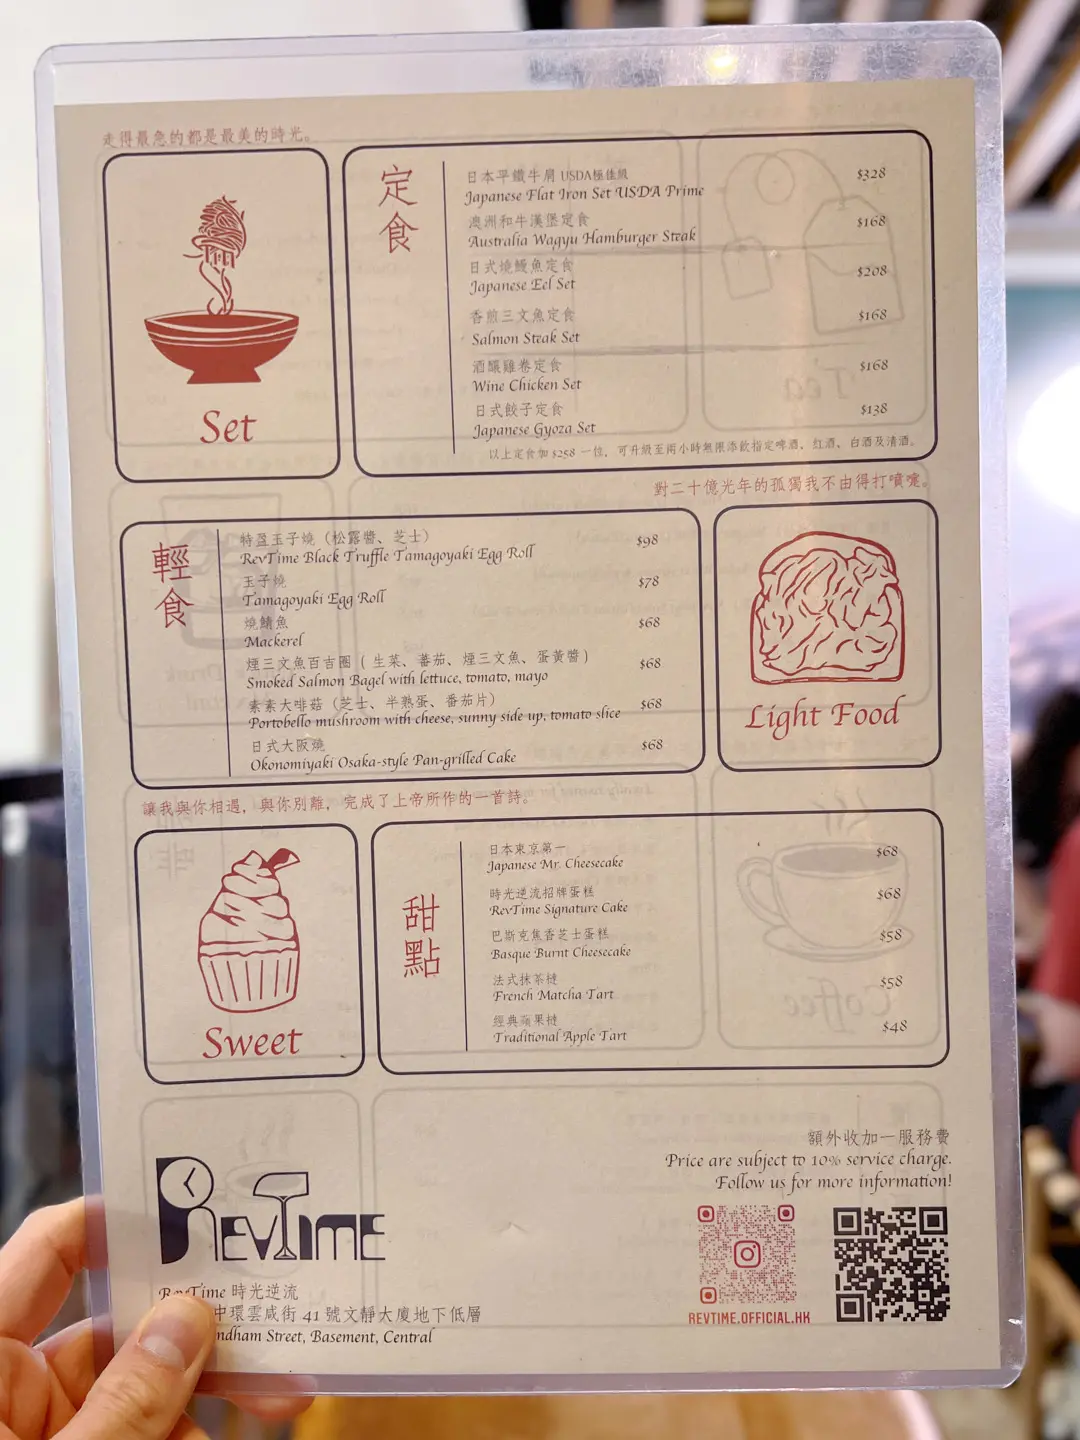 走得最急的都是最美的時光。
Set
定食
日本平鐵牛肩 USDA極佳級 $328
Japanese Flat Iron Set USDA Prime
澳洲和牛漢堡定食 $168
Australia Wagyu Hamburger Steak
日式燒鰻魚定食 $208
Japanese Eel Set
香煎三文魚定食 $168
Salmon Steak Set
酒釀雞卷定食 $168
Wine Chicken Set
日式餃子定食 $138
Japanese Gyoza Set
以上定食加 $258 一位，可升級至兩小時無限添飲指定啤酒、紅酒、白酒及清酒。
對二十億光年的孤獨我不由得打噴嚏。
輕食
特盈玉子燒（松露醬、芝士） $98
RevTime Black Truffle Tamagoyaki Egg Roll
玉子燒 $78
Tamagoyaki Egg Roll
燒鯖魚 $68
Mackerel
煙三文魚百吉圈（生菜、蕃茄、煙三文魚、蛋黃醬） $68
Smoked Salmon Bagel with lettuce, tomato, mayo
素素大啡菇（芝士、半熟蛋、番茄片） $68
Portobello mushroom with cheese, sunny side up, tomato slice
日式大阪燒 $68
Okonomiyaki Osaka-style Pan-grilled Cake
Light Food
讓我與你相遇，與你別離，完成了上帝所作的一首詩。
Sweet
甜點
日本東京第一 $68
Japanese Mr. Cheesecake
時光逆流招牌蛋糕 $68
RevTime Signature Cake
巴斯克焦香芝士蛋糕 $58
Basque Burnt Cheesecake
法式抹茶撻 $58
French Matcha Tart
經典蘋果撻 $48
Traditional Apple Tart
額外收加一服務費
Price are subject to 10% service charge.
Follow us for more information!
REVTIME
REVTIME.OFFICIAL.HK
RevTime 時光逆流
中環雲咸街 41 號文靜大廈地下低層
Street, Basement, Central